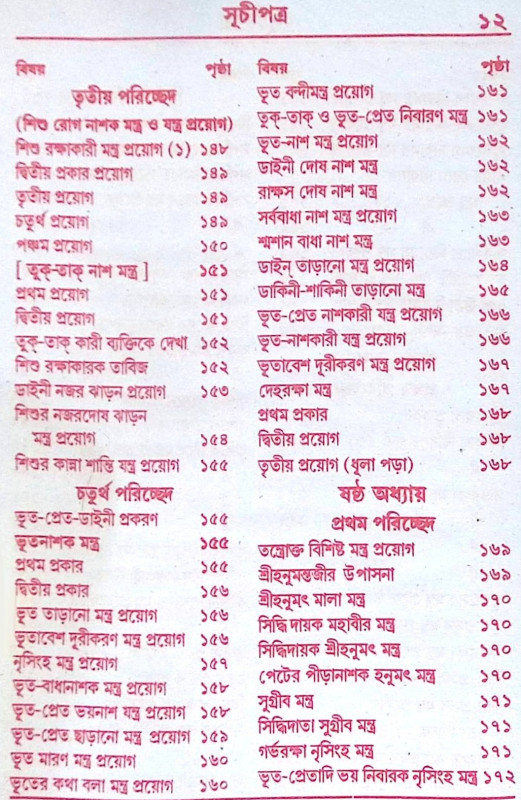 সূচীপত্র ১২
বিষয় পৃষ্ঠা
তৃতীয় পরিচ্ছেদ
(শিশু রোগ নাশক মন্ত্র ও যন্ত্র প্রয়োগ)
শিশু রক্ষাকারী মন্ত্র প্রয়োগ (১) ১৪৮
দ্বিতীয় প্রকার প্রয়োগ ১৪৯
তৃতীয় প্রয়োগ ১৪৯
চতুর্থ প্রয়োগ ১৪৯
পঞ্চম প্রয়োগ ১৫০
[ তুক্-তাক্ নাশ মন্ত্র ] ১৫১
প্রথম প্রয়োগ ১৫১
দ্বিতীয় প্রয়োগ ১৫১
তুক্-তাক্ কারী ব্যক্তিকে দেখা ১৫২
শিশু রক্ষাকারক তাবিজ ১৫২
ডাইনী নজর ঝাড়ন প্রয়োগ ১৫৩
শিশুর নজরদোষ ঝাড়ন
মন্ত্র প্রয়োগ ১৫৪
শিশুর কান্না শান্তি যন্ত্র প্রয়োগ ১৫৫
চতুর্থ পরিচ্ছেদ
ভূত-প্রেত-ডাইনী প্রকরণ ১৫৫
ভূতনাশক মন্ত্র ১৫৫
প্রথম প্রকার ১৫৫
দ্বিতীয় প্রকার ১৫৬
ভূত তাড়ানো মন্ত্র ১৫৬
ভূতাবেশ দূরীকরণ মন্ত্র প্রয়োগ ১৫৬
নৃসিংহ মন্ত্র প্রয়োগ ১৫৭
ভূত-বাধানাশক মন্ত্র প্রয়োগ ১৫৮
ভূত-প্রেত ভয়নাশ যন্ত্র প্রয়োগ ১৫৮
ভূত-প্রেত ছাড়ানো মন্ত্র প্রয়োগ ১৫৯
ভূত মারণ মন্ত্র প্রয়োগ ১৬০
ভূতের কথা বলা মন্ত্র প্রয়োগ ১৬০
বিষয় পৃষ্ঠা
ভূত বন্দীমন্ত্র প্রয়োগ ১৬১
তুক্-তাক্ ও ভূত-প্রেত নিবারণ মন্ত্র ১৬১
ভূত-নাশ মন্ত্র প্রয়োগ ১৬১
ডাইনী দোষ নাশ মন্ত্র ১৬২
রাক্ষস দোষ নাশ মন্ত্র ১৬২
সর্ববাধা নাশ মন্ত্র প্রয়োগ ১৬৩
শ্মশান বাধা নাশ মন্ত্র ১৬৩
ডাইন্ তাড়ানো মন্ত্র প্রয়োগ ১৬৪
ডাকিনী-শাকিনী তাড়ানো মন্ত্র ১৬৫
ভূত-প্রেত নাশকারী যন্ত্র প্রয়োগ ১৬৬
ভূত-নাশকারী যন্ত্র প্রয়োগ ১৬৬
ভূতাবেশ দূরীকরণ মন্ত্র প্রয়োগ ১৬৭
দেহরক্ষা মন্ত্র ১৬৭
প্রথম প্রকার ১৬৮
দ্বিতীয় প্রয়োগ ১৬৮
তৃতীয় প্রয়োগ (ধূলা পড়া) ১৬৮
ষষ্ঠ অধ্যায়
প্রথম পরিচ্ছেদ
তন্ত্রোক্ত বিশিষ্ট মন্ত্র প্রয়োগ ১৬৯
শ্রীহনুমন্তজীর উপাসনা ১৬৯
শ্রীহনুমৎ মালা মন্ত্র ১৭০
সিদ্ধি দায়ক মহাবীর মন্ত্র ১৭০
সিদ্ধিদায়ক শ্রীহনুমৎ মন্ত্র ১৭০
পেটের পীড়ানাশক হনুমৎ মন্ত্র ১৭০
সুগ্রীব মন্ত্র ১৭১
সিদ্ধিদাতা সুগ্রীব মন্ত্র ১৭১
গর্ভরক্ষা নৃসিংহ মন্ত্র ১৭১
ভূত-প্রেতাদি ভয় নিবারক নৃসিংহ মন্ত্র ১৭২